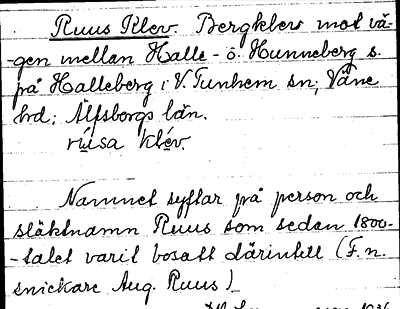 Ruus Klev. Bergklev mot vä-
-gen mellan Halle- o. Hunneberg s.
på Halleberg i V. Tunhem sn; Väne
hrd; Älfsborgs län.
rúsa klév.
Namnet syftar på person och
släktnamn Ruus som sedan 1800-
-talet varit bosatt därintill (F.n.
snickare Aug. Ruus)